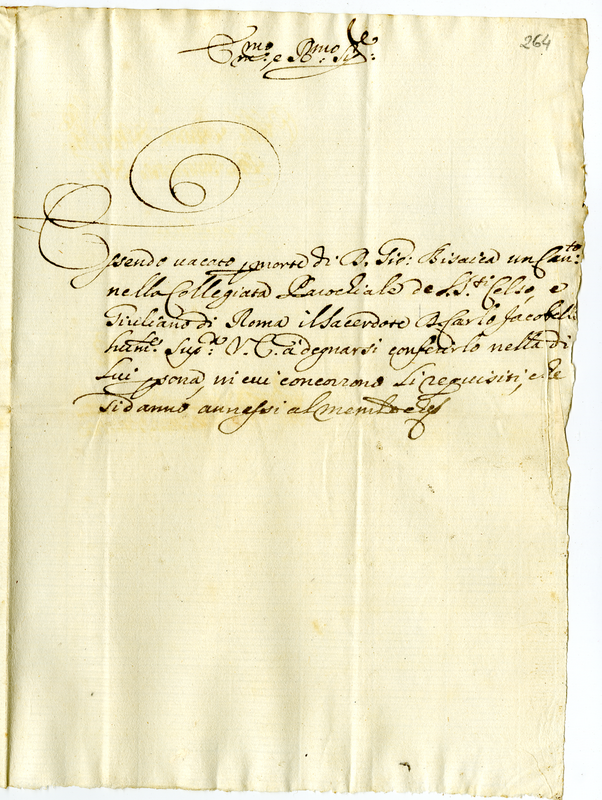 264
Em.mo e R.mo Sig.re
Essendo vacato p morte di D. Gio: Bisaica un Can.to
nella Collegiata Parochiale de S.S.ti Celso, e
Giuliano di Roma il Sacerdote D. Carlo Jacobelli
hum.te sup.ca V. E. à degnarsi conferirlo nella di
lui psona, in cui concorrono li requisiti, che
si danno annessi al memoriale